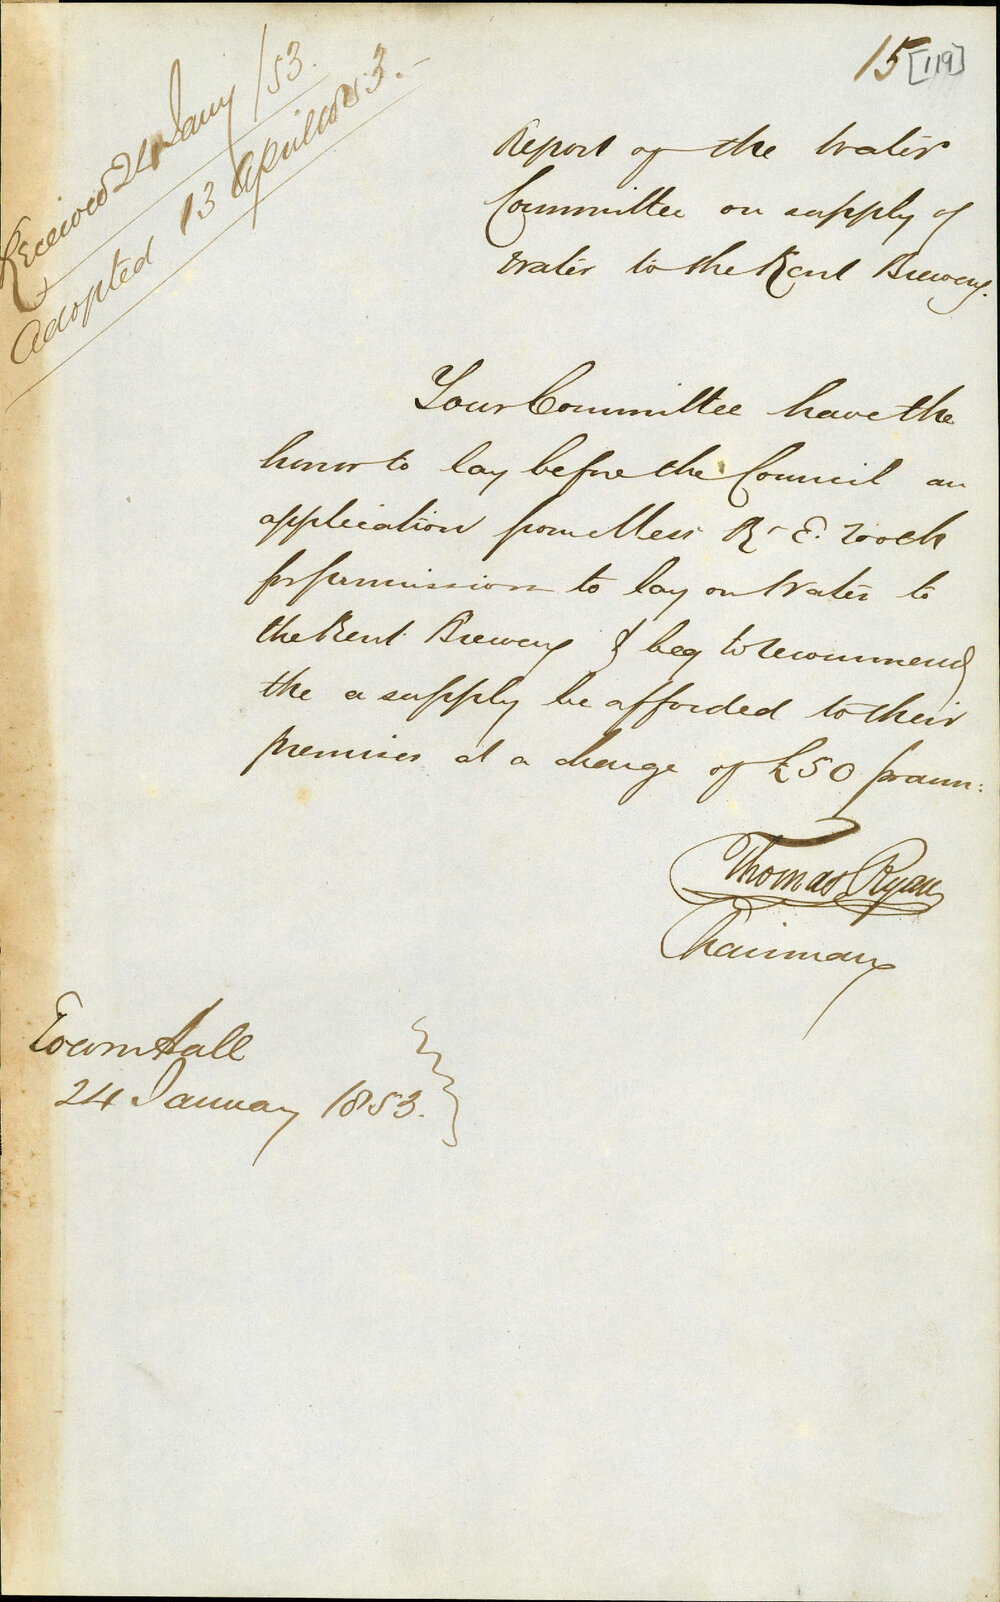 15 [119]
Received 24 Jany /53.
Adopted 13 April 1853.
Report of the Water
Committee on supply of
Water to the Kent Brewery.
Your Committee have the
honor to lay before the Council an
application from Mess R & E. Tooth
for permission to lay on Water to
the Kent Brewery & beg to recommend
the a supply be afforded to their
premises at a charge of £50 pr ann:
Thomas Ryan
Chairman
Town Hall
24 January 1853.